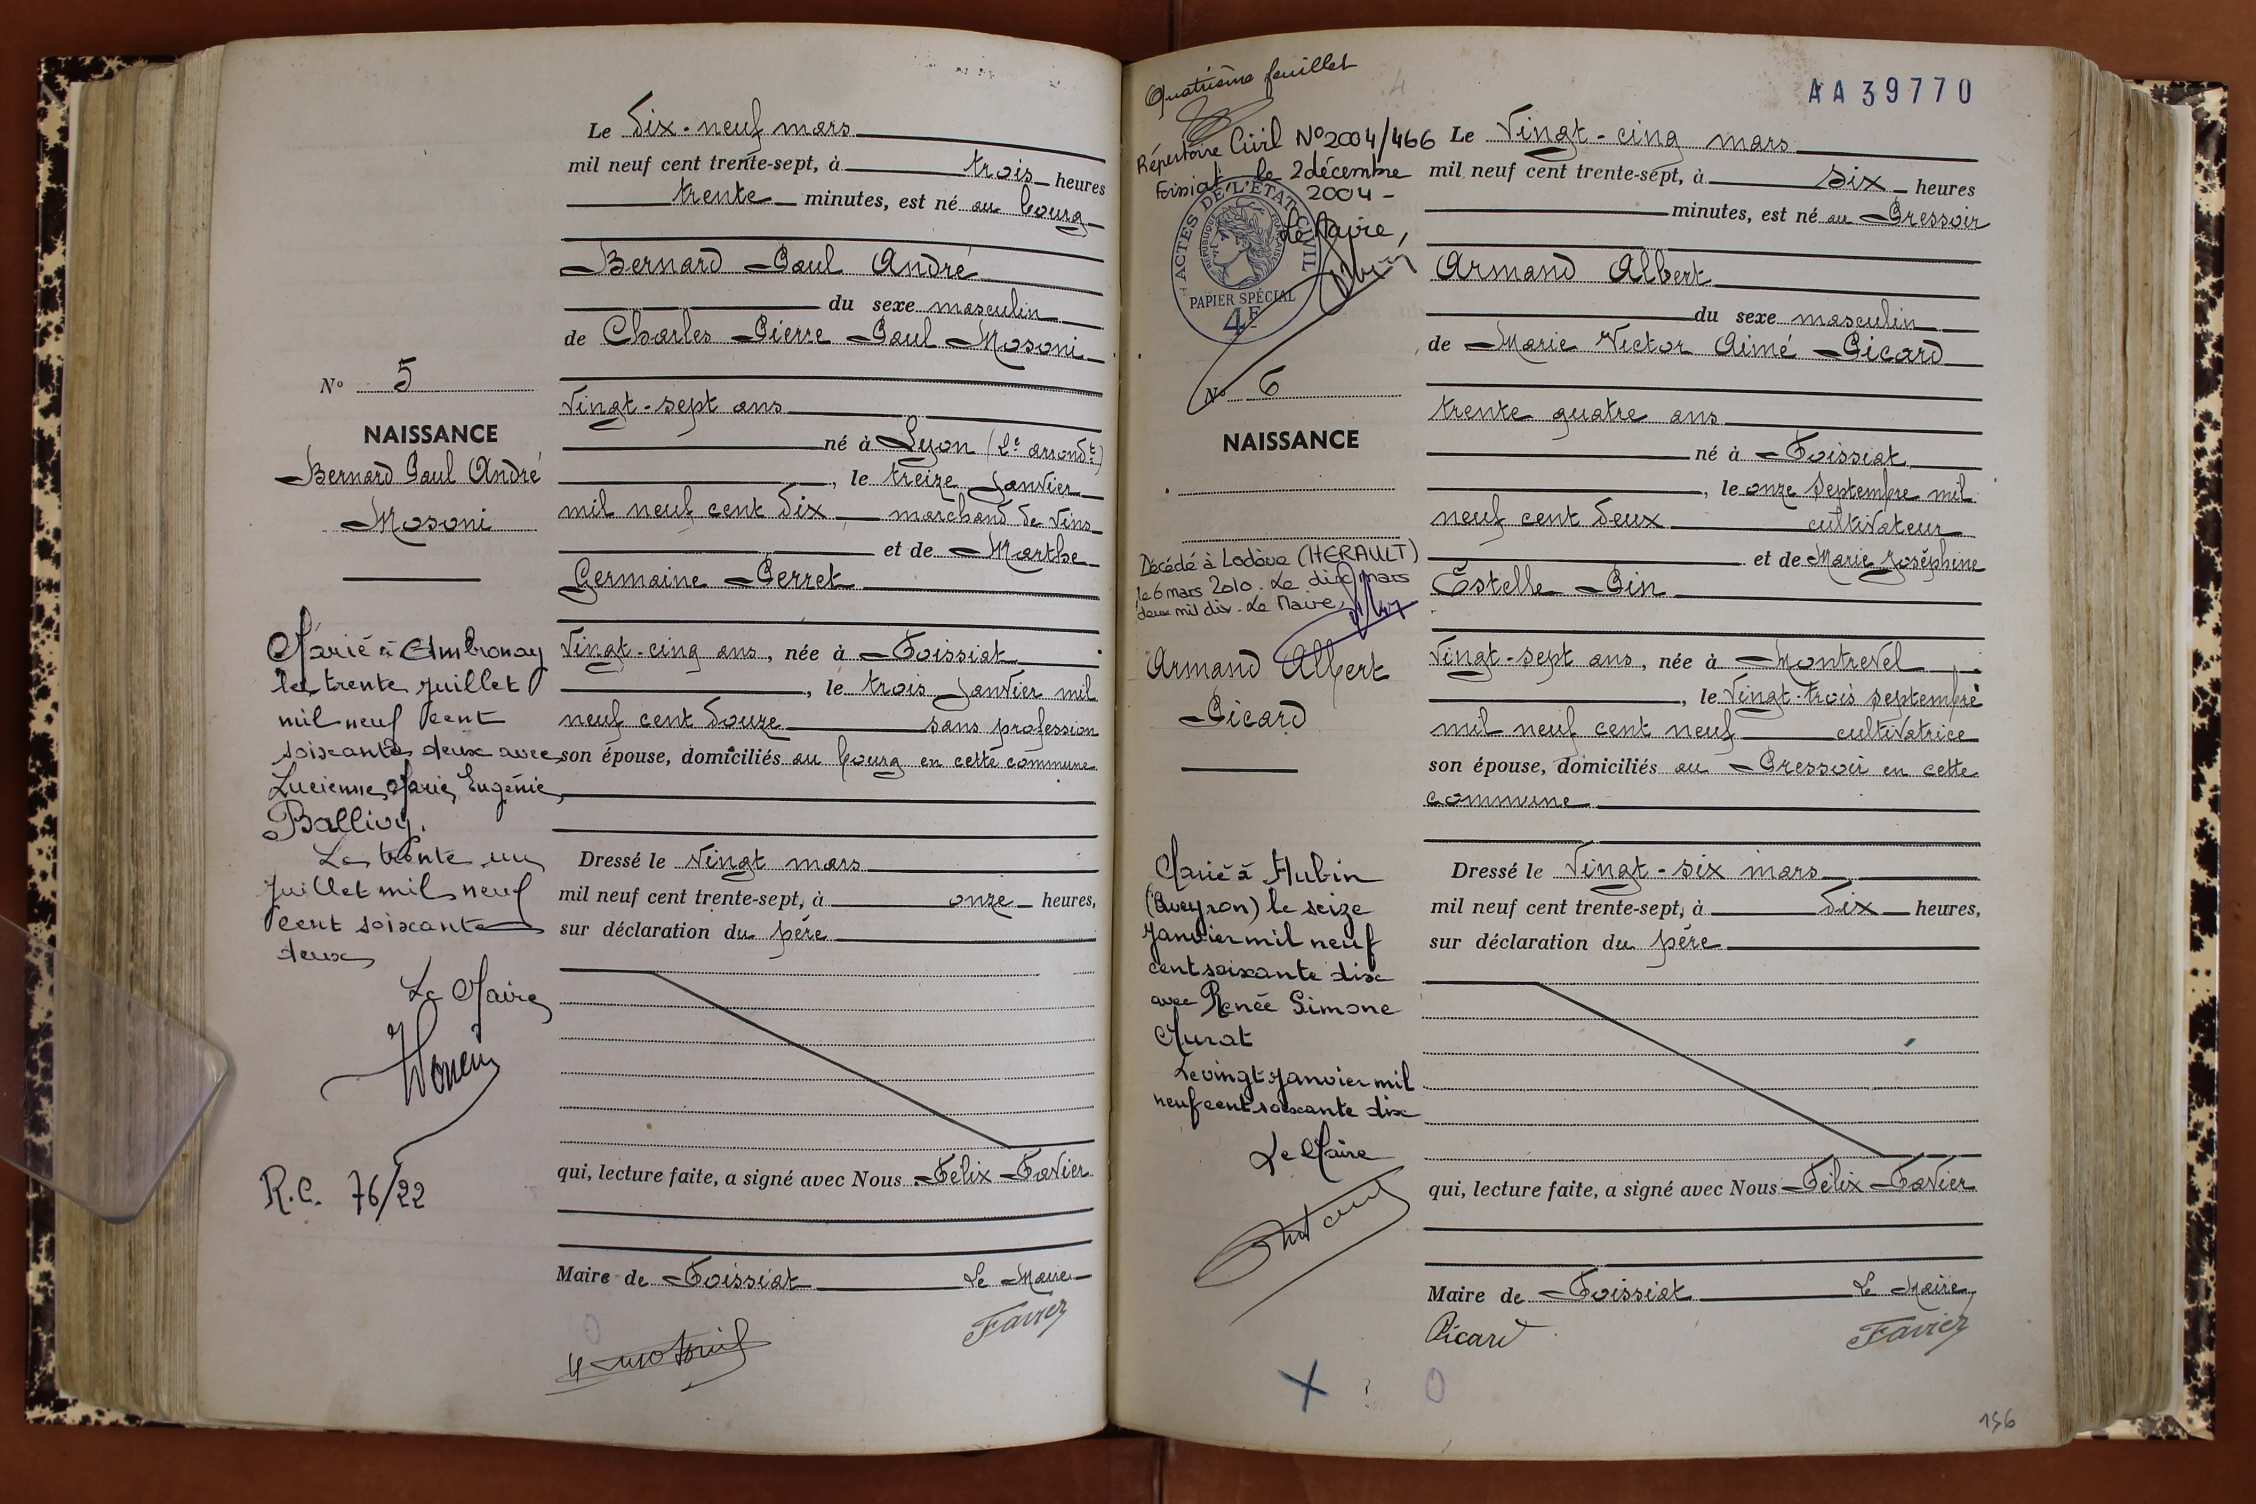 Le Dix-neuf mars
mil neuf cent trente-sept, à trois heures
trente minutes, est né au bourg
Bernard Paul André
du sexe masculin
de Charles Pierre Paul Mosoni
Vingt-sept ans
né à Lyon (2e arrondt)
, le treize Janvier
mil neuf cent Dix marchand de Vins
et de Marthe
Germaine Perret
Vingt-cinq ans, née à Foissiat
, le trois Janvier mil
neuf cent Douze sans profession
son épouse, domiciliés au bourg en cette commune
Dressé le Vingt mars
mil neuf cent trente-sept, à onze heures,
sur déclaration du père
qui, lecture faite, a signé avec Nous Félix Favier
Maire de Foissiat Le Maire
Favier
No 5
NAISSANCE
Bernard Paul André
Mosoni
Marié à Ambronay
le trente juillet
mil neuf cent
soixante deux avec
Lucienne Marie Eugénie
Ballivy.
Le trente un
juillet mil neuf
cent soixante
deux
Le Maire
R.C. 76/22
Quatrième feuillet
Répertoire Civil No 2004/466
Foissiat le 2 décembre
2004 -
Le Maire,
ACTES DE L'ÉTAT CIVIL
RÉPUBLIQUE FRANÇAISE
PAPIER SPÉCIAL
4F
No 6
NAISSANCE
Décédé à Lodève (HERAULT)
le 6 mars 2010. Le dix mars
deux mil dix. Le Maire,
Armand Albert
Picard
Marié à Aubin
(Aveyron) le seize
janvier mil neuf
cent soixante dix
avec Renée Simone
Murat
Le vingt janvier mil
neuf cent soixante dix
Le Maire
AA 39770
Le Vingt-cinq mars
mil neuf cent trente-sept, à six heures
minutes, est né au Pressoir
Armand Albert
du sexe masculin
de Marie Victor Aimé Picard
trente quatre ans
né à Foissiat
, le onze Septembre mil
neuf cent Deux cultivateur
et de Marie Joséphine
Estelle Pin
Vingt-sept ans, née à Montrevel
, le Vingt-trois septembre
mil neuf cent neuf cultivatrice
son épouse, domiciliés au Pressoir en cette
commune
Dressé le Vingt-six mars
mil neuf cent trente-sept, à Dix heures,
sur déclaration du père
qui, lecture faite, a signé avec Nous Félix Favier
Maire de Foissiat Le Maire
Picard Favier
156